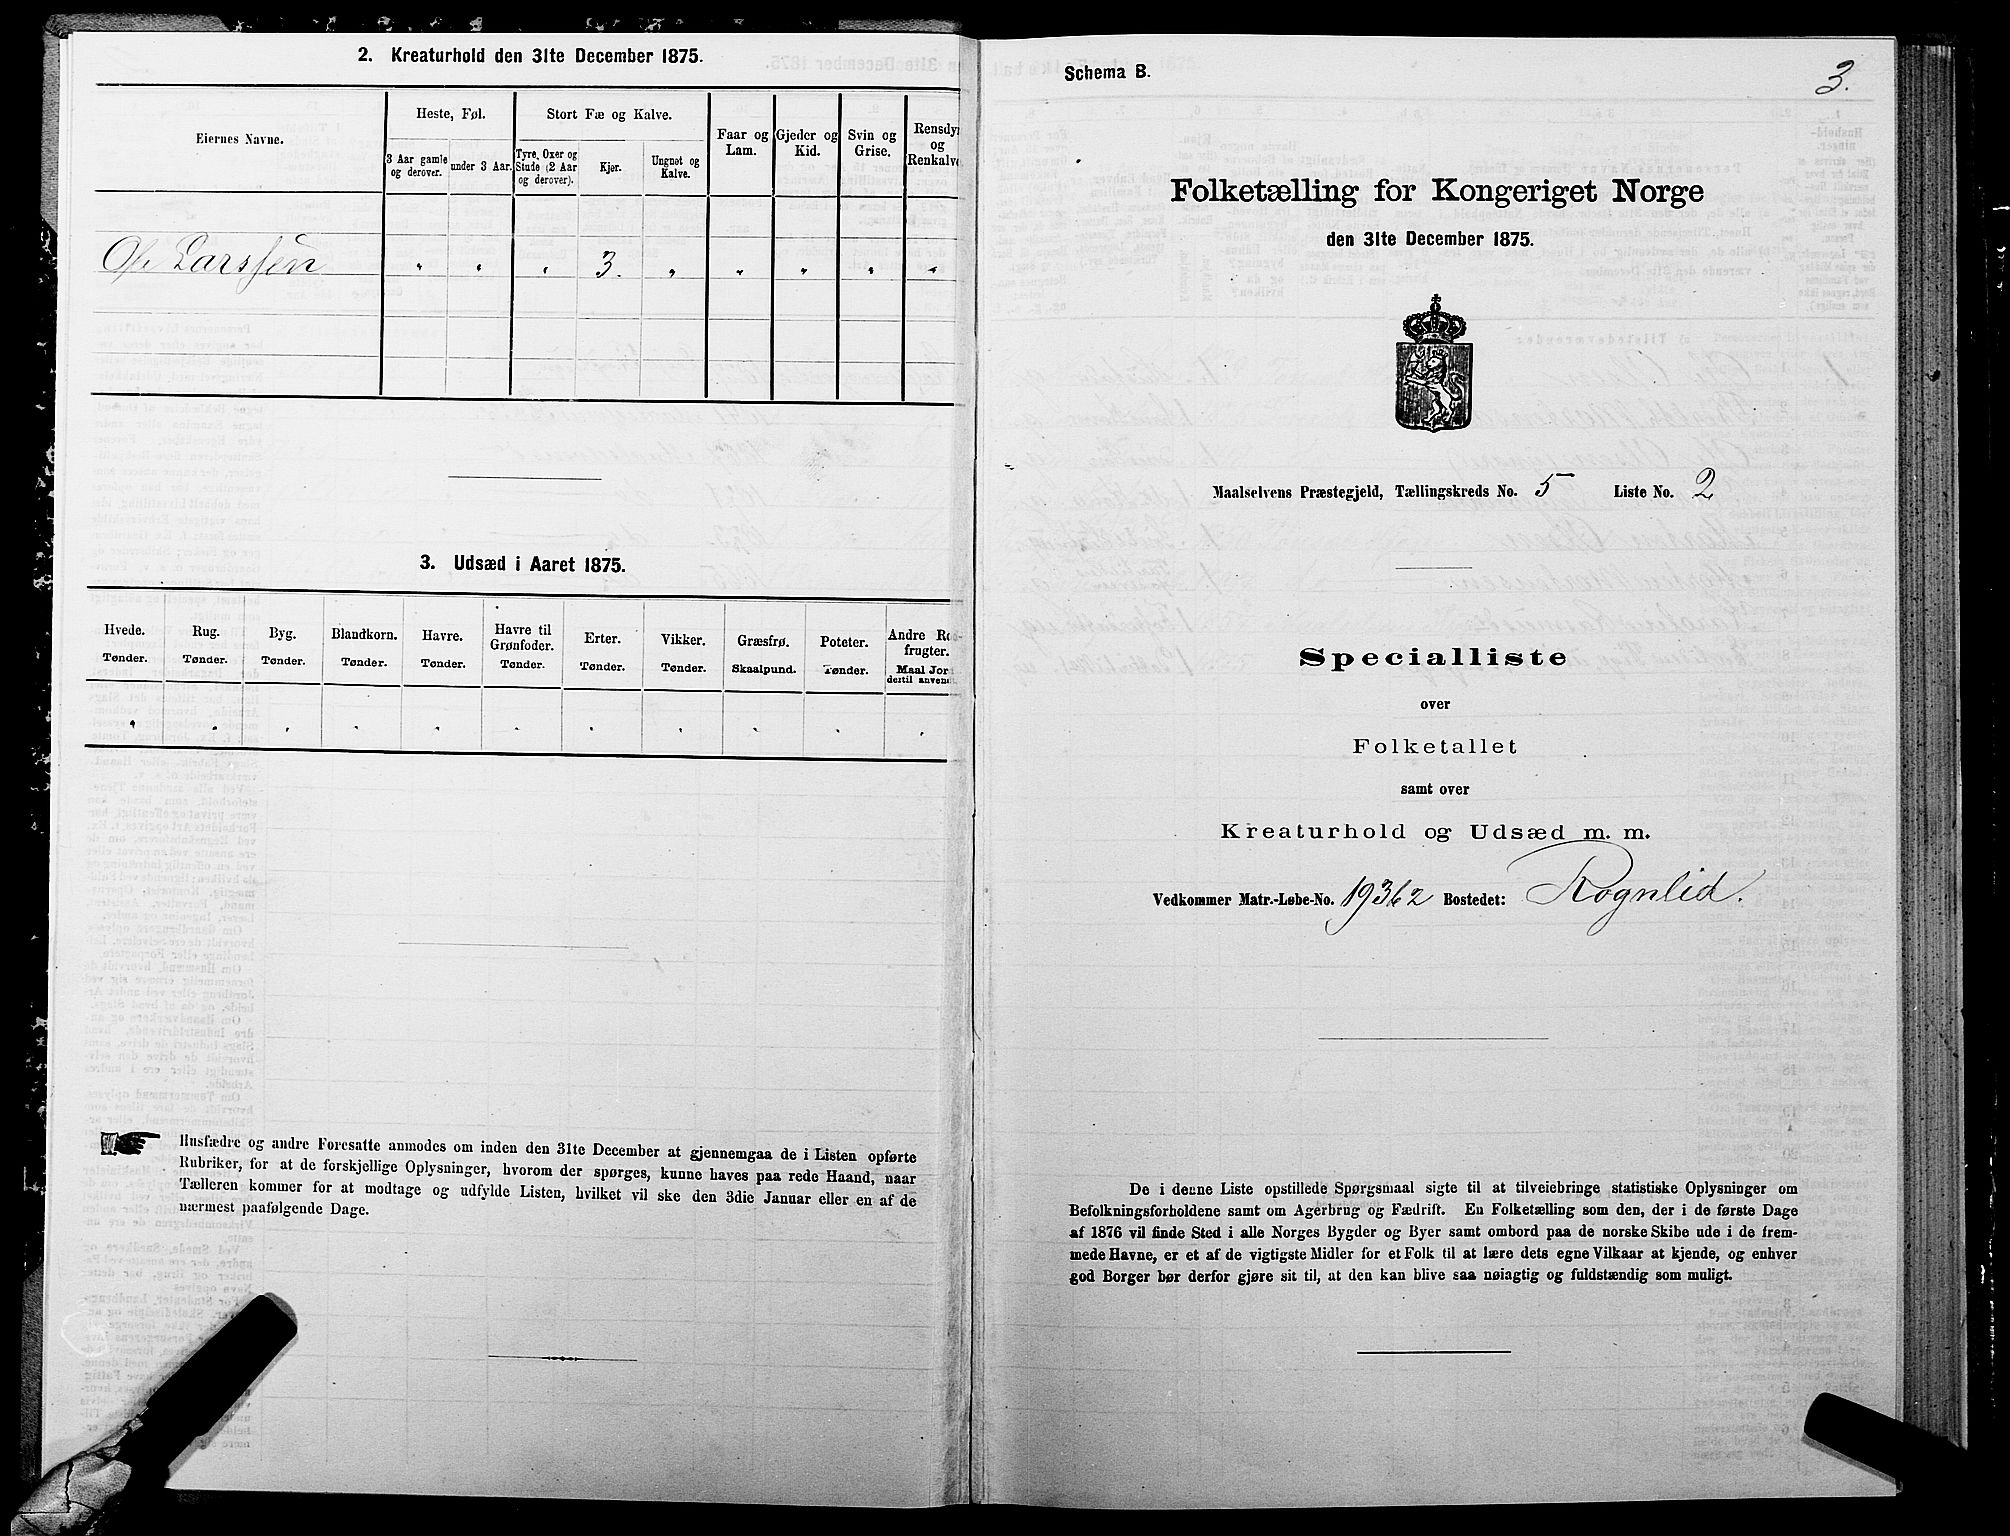 2. Kreaturhold den 31te December 1875.
Eiernes Navne.
Heste, Føl.
Stort Fæ og Kalve.
Faar og Lam.
Gjeder og Kid.
Svin og Grise.
Rensdyr og Renkalve
3 Aar gamle og derover.
under 3 Aar.
Tyre, Oxer og Stude (2 Aar og derover).
Kjør.
Ungnøt og Kalve.
Larssen " " " 3. " " " " "
3. Udsæd i Aaret 1875.
Hvede. Rug. Byg. Blandkorn. Havre. Havre til Grønfoder. Erter. Vikker. Græsfrø. Poteter. Andre Rodfrugter.
Tønder. Tønder. Tønder. Tønder. Tønder. Tønder. Tønder. Tønder. Skaalpund. Tønder. Maal Jord dertil anvendt.
" " " " " " " " " " "
Husfædre og andre Foresatte anmodes om inden den 31te December at gjennemgaa de i Listen opførte
Rubriker, for at de forskjellige Oplysninger, hvorom der spørges, kunne haves paa rede Haand, naar
Tælleren kommer for at modtage og udfylde Listen, hvilket vil ske den 3die Januar eller en af de
nærmest paafølgende Dage.
Schema B.
3.
Folketælling for Kongeriget Norge
den 31te December 1875.
Maalselvens Præstegjeld, Tællingskreds No. 5 Liste No. 2
Specialliste
over
Folketallet
samt over
Kreaturhold og Udsæd m. m.
Vedkommer Matr.-Løbe-No. 19362 Bostedet: Rognlid.
De i denne Liste opstillede Spørgsmaal sigte til at tilveiebringe statistiske Oplysninger om
Befolkningsforholdene samt om Agerbrug og Fædrift. En Folketælling som den, der i de første Dage
af 1876 vil finde Sted i alle Norges Bygder og Byer samt ombord paa de norske Skibe ude i de frem-
mede Havne, er et af de vigtigste Midler for et Folk til at lære dets egne Vilkaar at kjende, og enhver
god Borger bør derfor gjøre sit til, at den kan blive saa nøiagtig og fuldstændig som muligt.